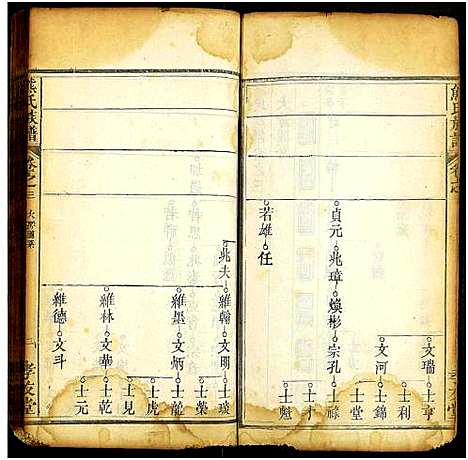 熊氏族譜
文瑞
士亨
士利
文河
士錦
士堂
貞元
兆璋
煥彬
宗孔
士祿
士才
士魁
若雄
任
兆夫
維翰
文明
士琰
士榮
維墨
文炳
士龍
士虎
維林
文華
士見
士乾
維德
文斗
士元
熊氏族譜
卷之三
二
孝友堂